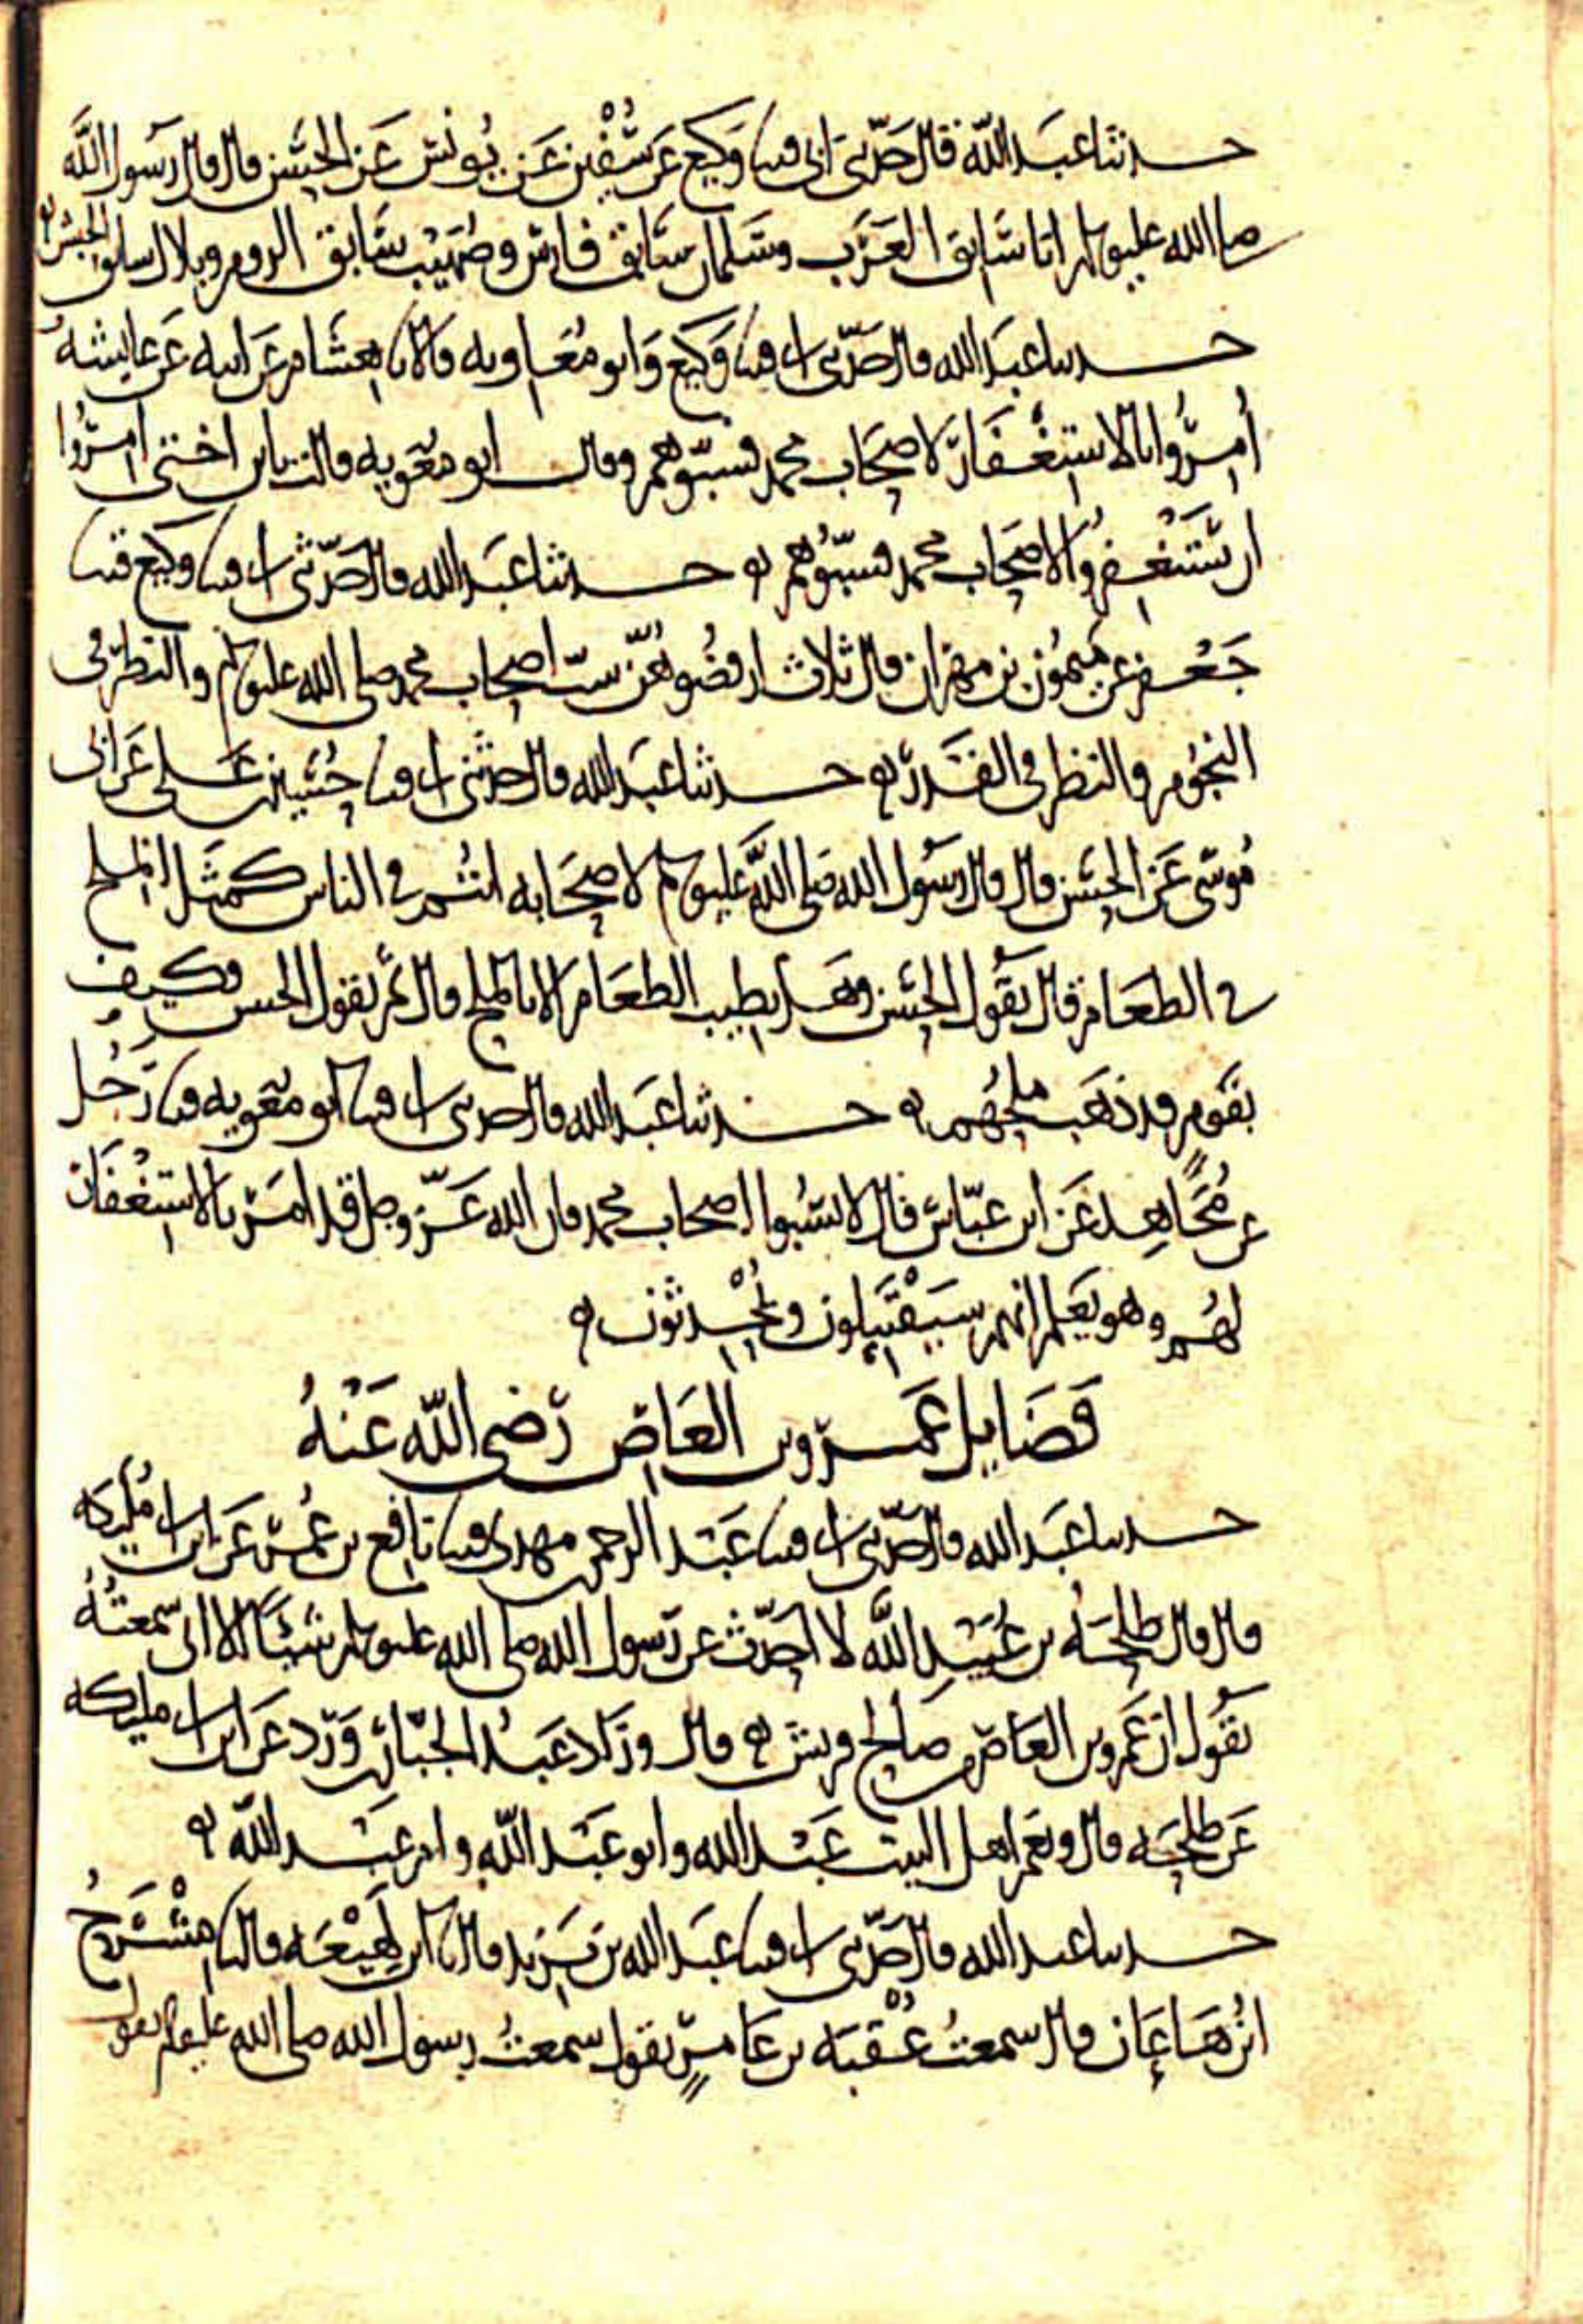 حدثنا عبد الله قال حدثني ابي قثنا وكيع عن سفين عن يونس عن الحسن قال قال رسول الله
صلى الله عليه وسلم انا سابق العرب وسلمان سابق فارس وصهيب سابق الروم وبلال سابق الحبش
حدثنا عبد الله قال حدثني ابي قثنا وكيع وابو معاويه قالا نا هشام عن ابيه عن عايشه
أمروا بالاستغفار لاصحاب محمد فسبوهم وقال ابو معويه قالت يابن اختي امروا
ان يستغفروا لاصحاب محمد فسبوهم حدثنا عبد الله قال حدثني ابي قثنا وكيع قثنا
جعفر عن ميمون بن مهران قال ثلاث ارفضوهن سب اصحاب محمد صلى الله عليه وسلم والنظر في
النجوم والنظر في القدر حدثنا عبد الله قال حدثني ابي قثنا حسين بن علي عن ابي
موسى عن الحسن قال قال رسول الله صلى الله عليه وسلم لاصحابه انتم في الناس كمثل الملح
في الطعام قال يقول الحسن وهل يطيب الطعام الا بالملح قال ثم يقول الحسن وكيف
بقوم قد ذهب ملحهم حدثنا عبد الله قال حدثني ابي قثنا ابو معويه قثنا رجل
عن مجاهد عن ابن عباس قال لا تسبوا اصحاب محمد فان الله عز وجل قد امر بالاستغفار
لهم وهو يعلم انهم سيقتتلون ويحدثون
فضايل عمرو بن العاص رضي الله عنه
حدثنا عبد الله قال حدثني ابي قثنا عبد الرحمن بن مهدي قثنا نافع بن عمر عن ابن ابي مليكه
قال قال طلحة بن عبيد الله لا احدث عن رسول الله صلى الله عليه وسلم شيئا الا اني سمعته
يقول ان عمرو بن العاص من صالح قريش قال وزاد عبد الجبار بن ورد عن ابن ابي مليكه
عن طلحه قال ونعم اهل البيت عبد الله وابو عبد الله وام عبد الله
حدثنا عبد الله قال حدثني ابي قثنا عبد الله بن يزيد قال نا ابن لهيعه قال نا مشرح
ابن هاعان قال سمعت عقبه بن عامر يقول سمعت رسول الله صلى الله عليه وسلم يقول